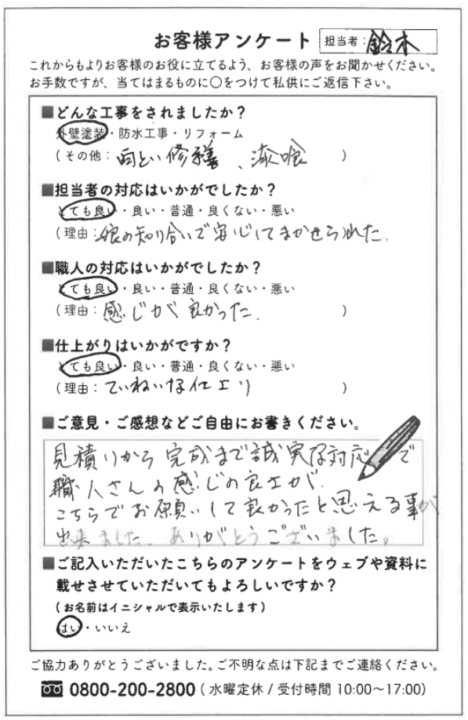 お客様アンケート 担当者: 鈴木
これからもよりお客様のお役に立てるよう、お客様の声をお聞かせください。
お手数ですが、当てはまるものに〇をつけて私供にご返信下さい。
■どんな工事をされましたか?
外壁塗装・防水工事・リフォーム
(その他: 雨とい修繕、漆喰 )
■担当者の対応はいかがでしたか?
とても良い・良い・普通・良くない・悪い
(理由: 娘の知り合いで安心してまかせられた.
■職人の対応はいかがでしたか?
とても良い・良い・普通・良くない・悪い
(理由: 感じが良かった. )
■仕上がりはいかがですか?
とても良い・良い・普通・良くない・悪い
(理由: ていねいな仕上り )
■ご意見・ご感想などご自由にお書きください。
見積りから完成まで誠実な対応で
職人さんの感じの良さが.
こちらでお願いして良かったと思える事が
出来ました.ありがとうございました。
■ご記入いただいたこちらのアンケートをウェブや資料に
載せさせていただいてもよろしいですか?
(お名前はイニシャルで表示いたします)
はい・いいえ
ご協力ありがとうございました。ご不明な点は下記までご連絡ください。
0800-200-2800(水曜定休/受付時間 10:00〜17:00)